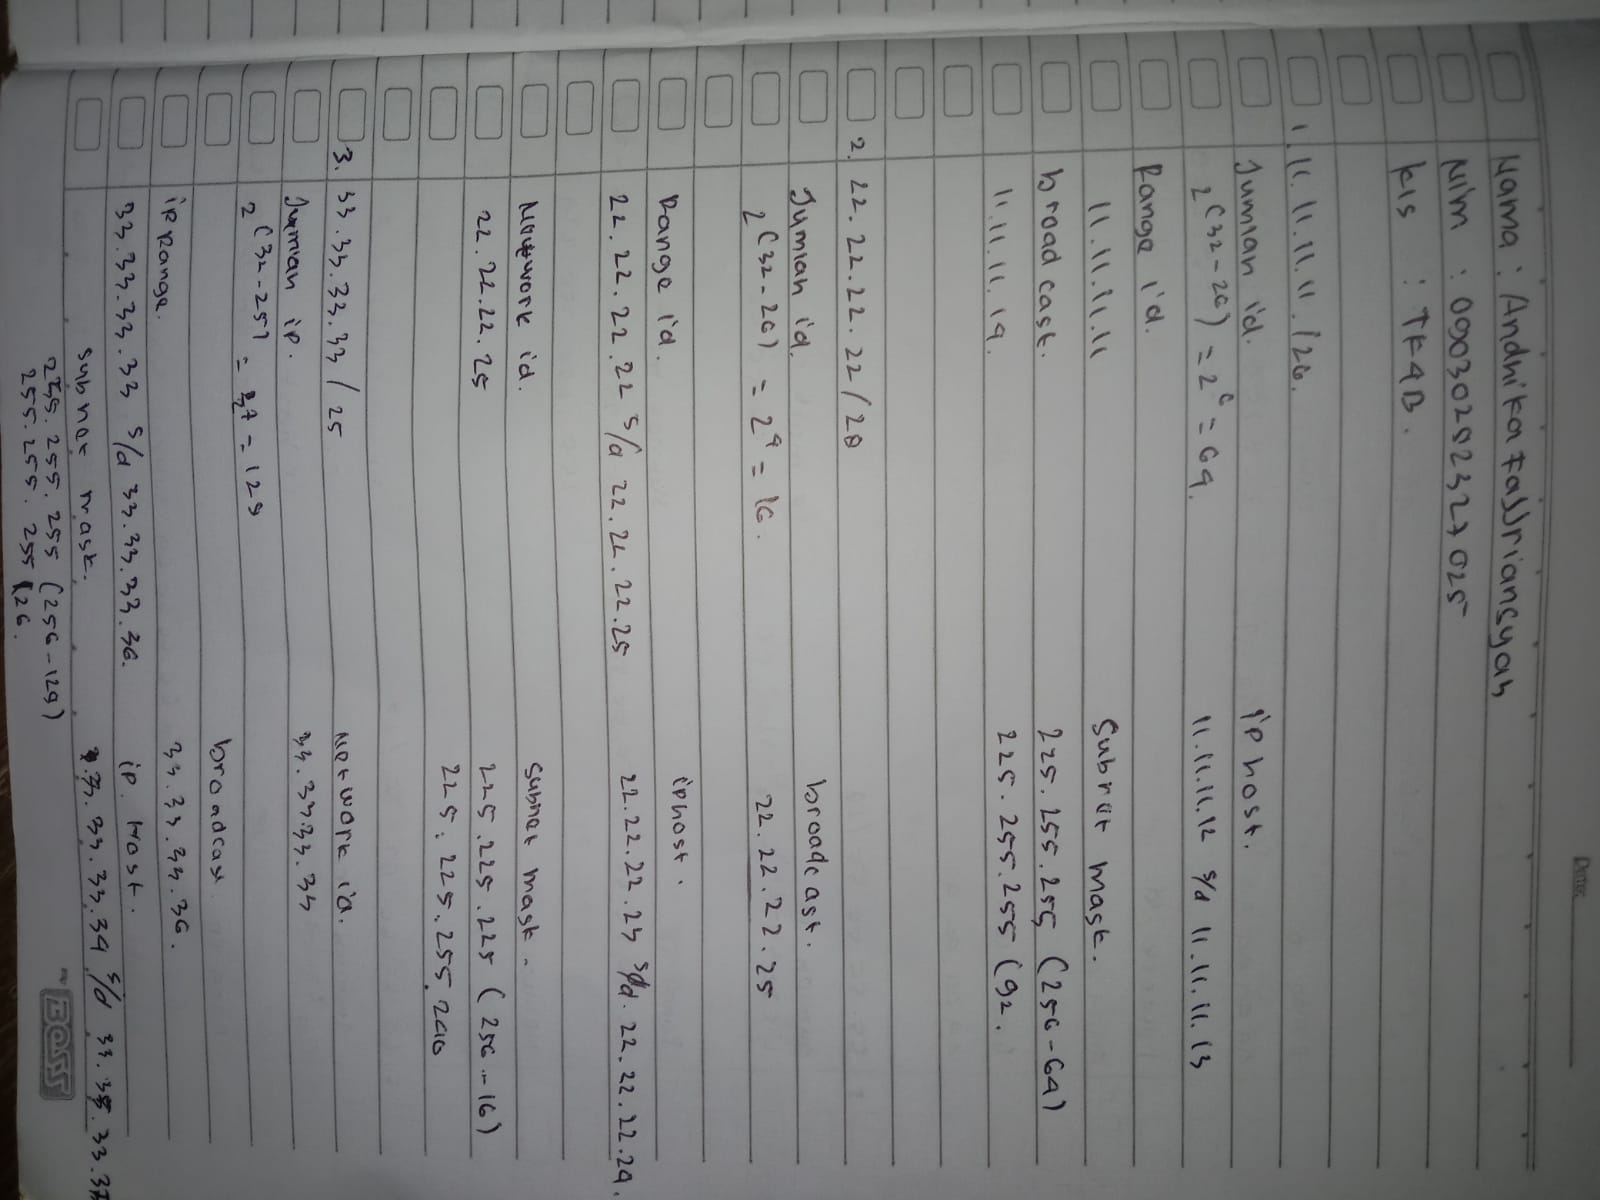 Date:
Nama : Andhika Fassriansyah
Nim : 09030282327025
Kls : TK4B.
1. 11.11.11.11./26.
Jumlah id.
2(32-26) = 2^6 = 64.
Range id.
11.11.11.11
broadcast.
11.11.11.14.
ip host.
11.11.11.12 s/d 11.11.11.13
Subnet mask.
225.255.255 (256-64)
225.255.255 (92.
2. 22.22.22.22/28
Jumlah id.
2(32-28) = 2^4 = 16.
Range id.
22.22.22.22 s/d 22.22.22.25
Network id.
22.22.22.25
broadcast.
22.22.22.25
iphost.
22.22.22.23 s/d. 22.22.22.24.
subnet mask.
225.225.225 (256-16)
225.225.255.240
3. 33.33.33.33/25
Jumlah ip.
2(32-25) = 2^7 = 128
ip Range.
33.33.33.33 s/d 33.33.33.36.
subnet mask.
255.255.255 (256-128)
255.255.255 126.
Network id.
33.33.33.33
broadcast
33.33.33.36.
ip. Host.
33.33.33.34 s/d 33.33.33.37
BOSS